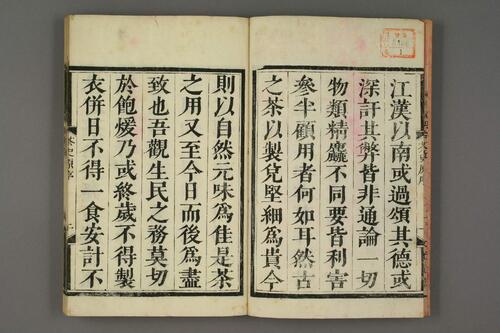 江漢以南或過頌其德或
深訐其弊皆非通論一切
物類精麤不同要皆利害
參半顧用者何如耳然古
之茶以製堅細為貴今
則以自然元味為佳是茶
之用又至今日而後為盡
致也吾觀生民之務莫切
於飽煖乃或終歲不得製
衣併日不得一食安計不
茶史
序